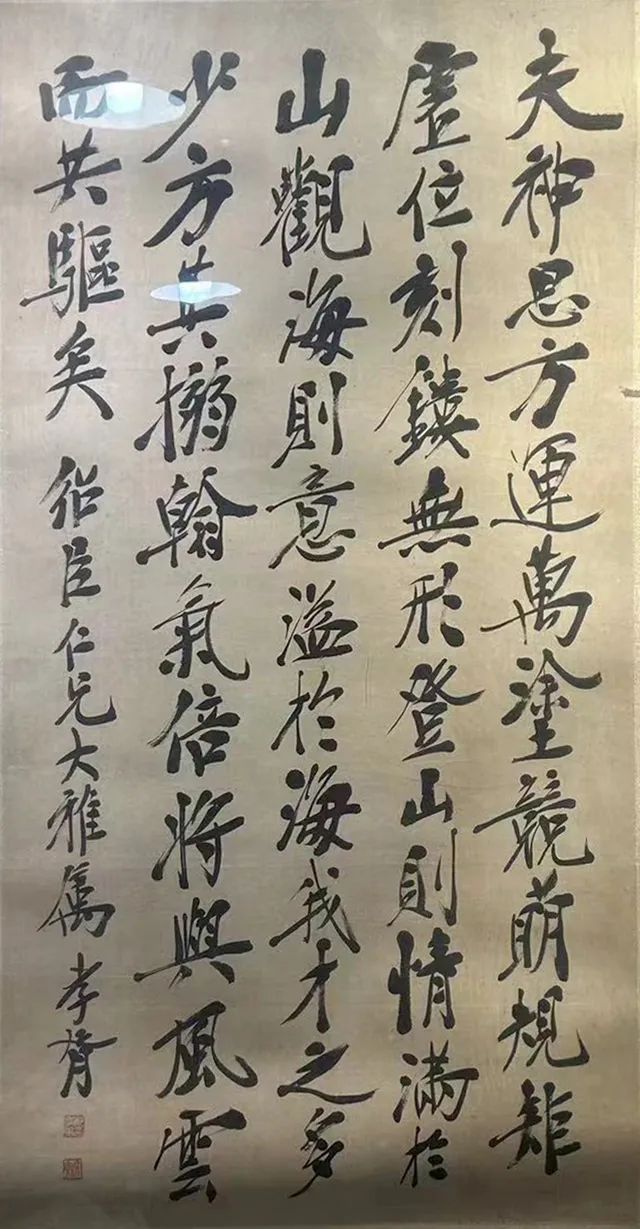 夫神思方運萬塗競萌規矩
虛位刻鏤無形登山則情滿於
山觀海則意溢於海我才之多
少方其搦翰氣倍將與風雲
而共驅矣 紹臣仁兄大雅屬 孝胥